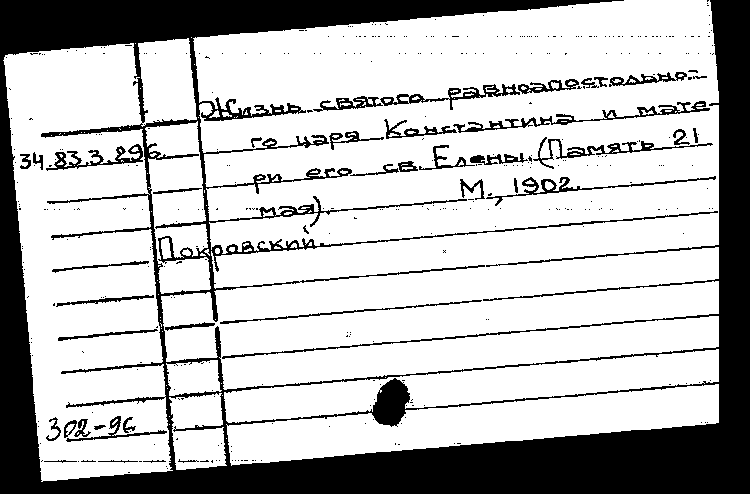 Жизнь святого равноапостольно-
го царя Константина и мате-
34.83.3.296
ри его св. Елены. (Память 21
мая). М., 1902.
Покровский.
302-96